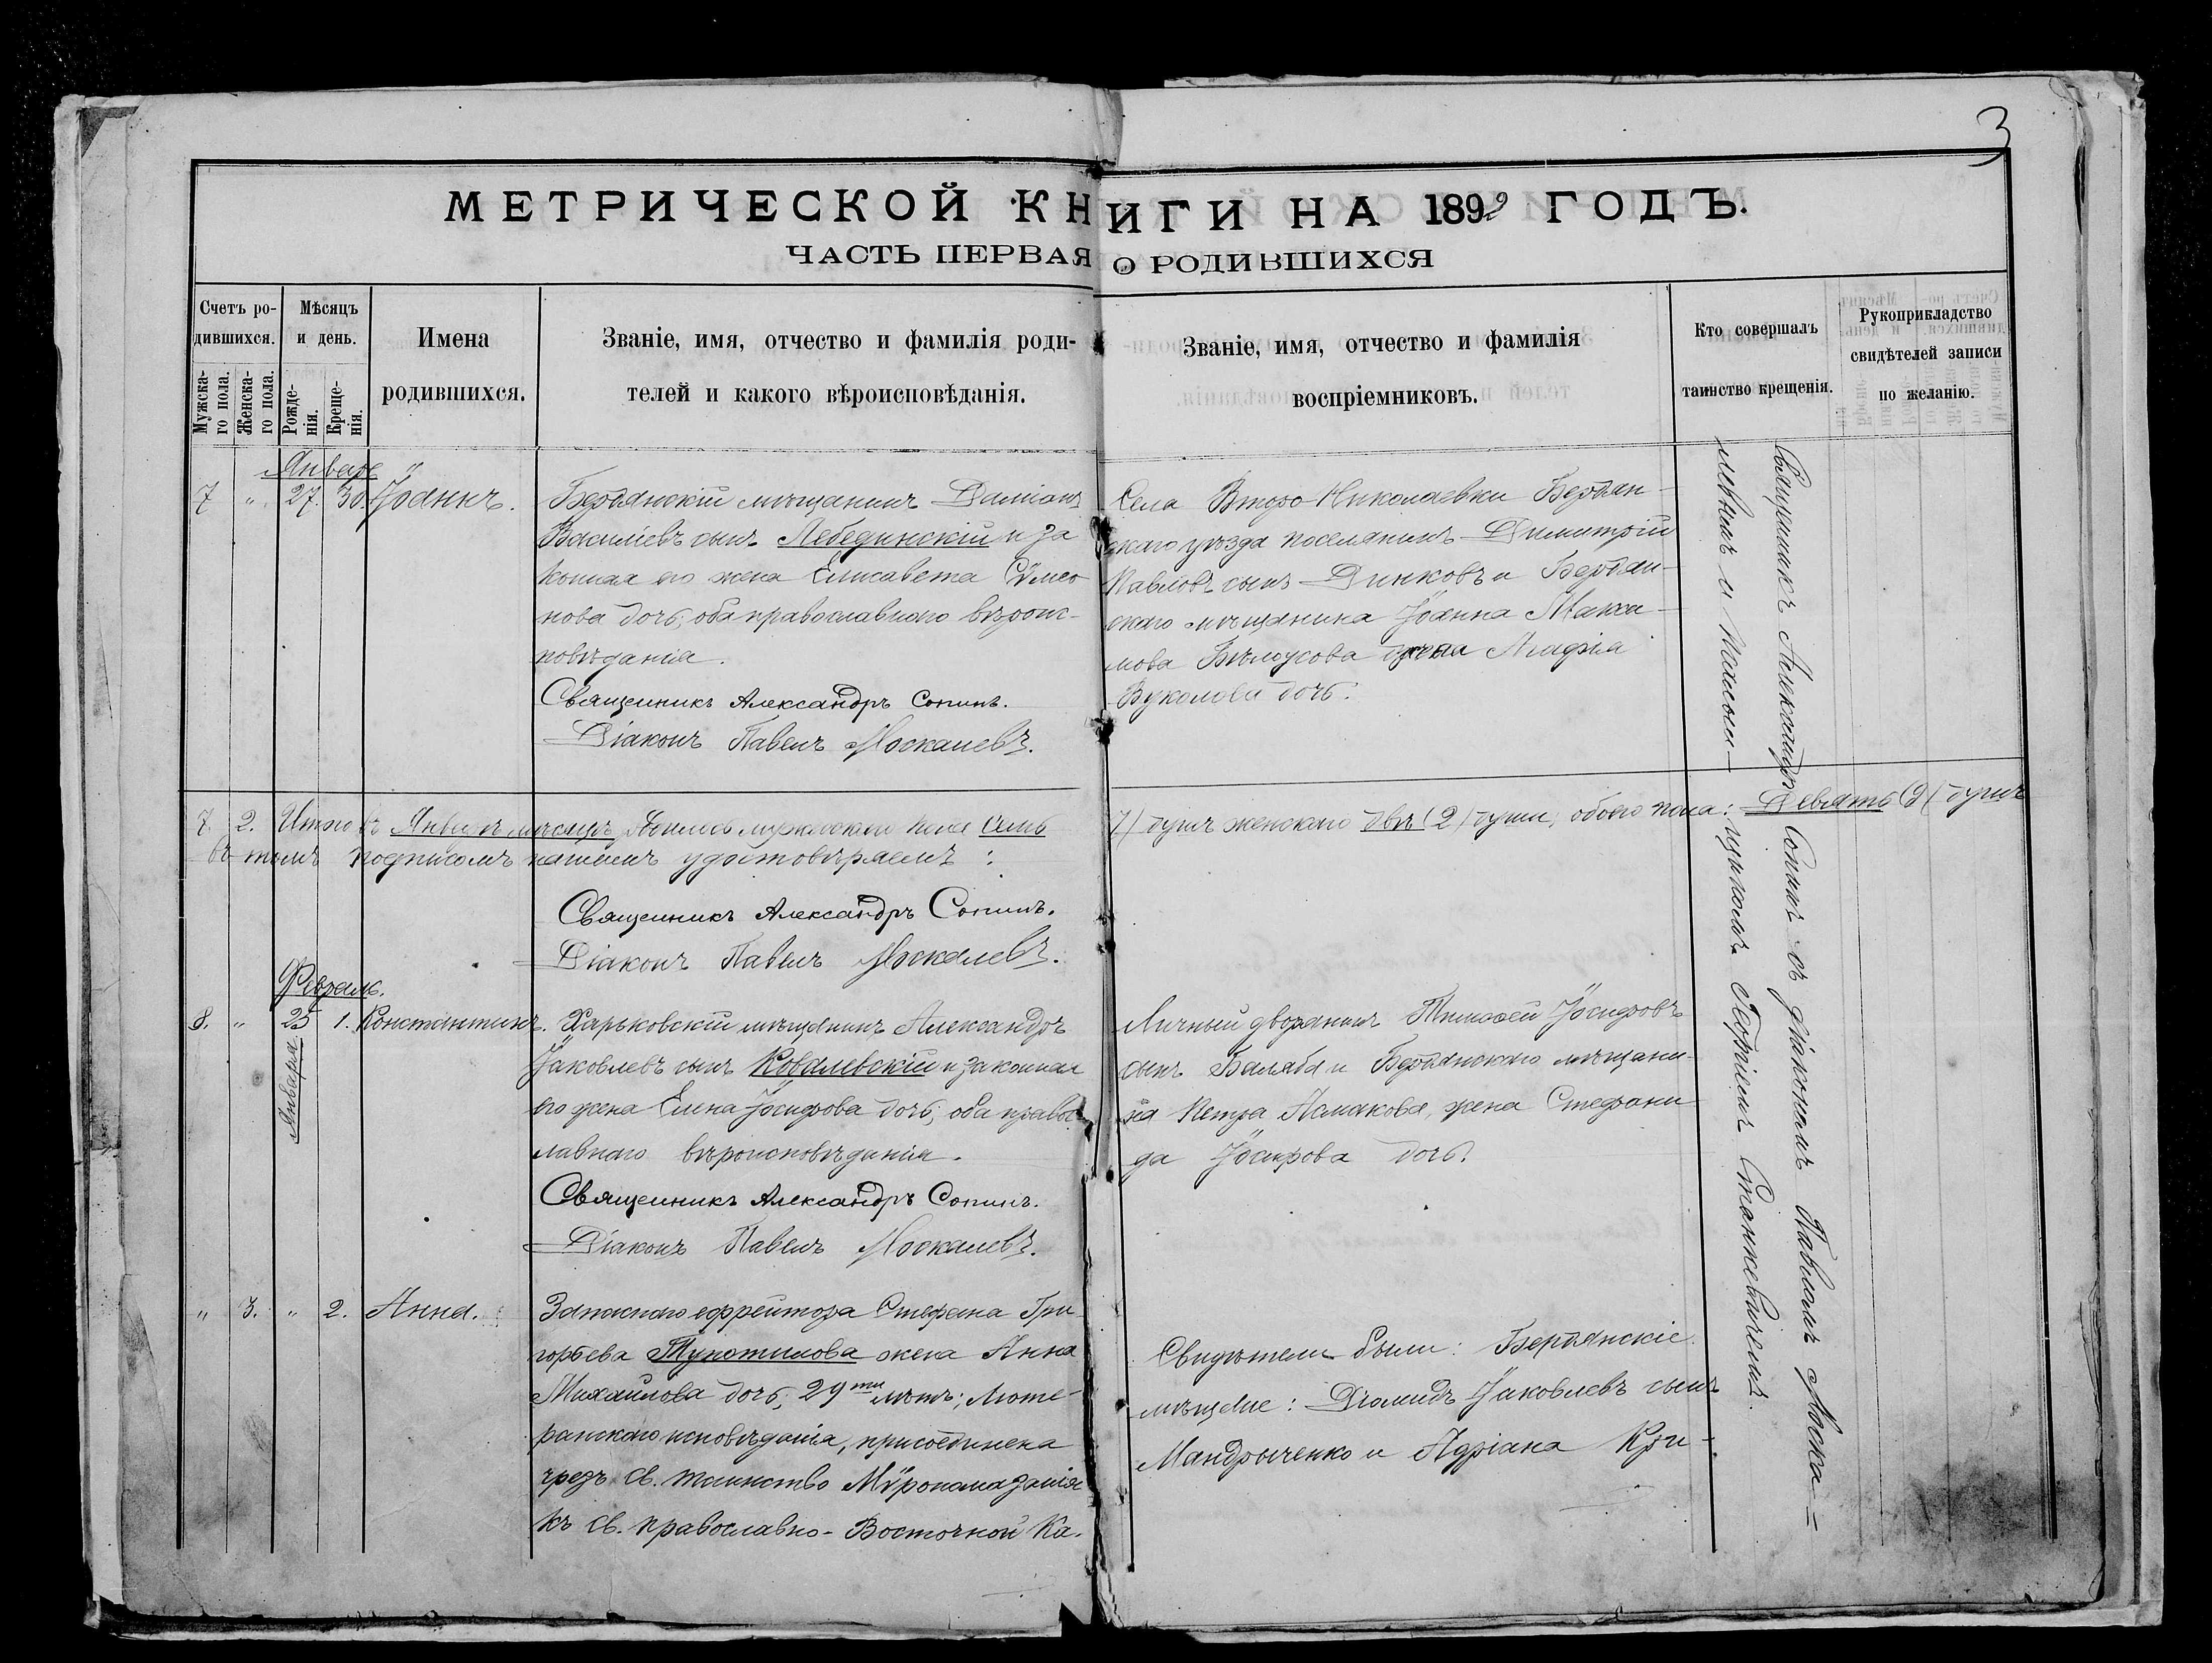 3
МЕТРИЧЕСКОЙ КНИГИ НА 1892 ГОДЪ.
ЧАСТЬ ПЕРВАЯ О РОДИВШИХСЯ
Счетъ ро-
дившихся.
Мужска-
го пола.
Женска-
го пола.
Мѣсяцъ
и день.
Рожде-
нія.
Креще-
нія.
Имена
родившихся.
Званіе, имя, отчество и фамилія роди-
телей и какого вѣроисповѣданія.
Званіе, имя, отчество и фамилія
воспріемниковъ.
Кто совершалъ
таинство крещенія.
Рукоприкладство
свидѣтелей записи
по желанію.
Январь
7 " 27. 30. Іоаннъ.
Бердянскій мѣщанинъ Даміанъ
Василіевъ сынъ Лебединскій и за
конная его жена Елисавета Сѵмео
нова дочь; оба православнаго вѣроис-
повѣданія.
Священникъ Александръ Сопинъ.
Діаконъ Павелъ Москалевъ.
Села Второ-Николаевки Бердян-
скаго уѣзда поселянинъ Димитрій
Павловъ сынъ Динковъ и Бердян-
скаго мѣщанина Іоанна Макси-
мова Бѣлоусова жена Агафія
Вуколова дочь.
7. 2. Итого въ Январѣ мѣсяцѣ родилось мужскаго пола семь
7) душъ женскаго двѣ (2) души, обоего пола: Девять (9) душъ
въ томъ подписомъ нашимъ удостовѣряемъ:
Священникъ Александръ Сопинъ.
Діаконъ Павелъ Москалевъ.
Февраль.
8. " 25 1. Константинъ.
Января
Харьковскій мѣщанинъ Александръ
Іаковлевъ сынъ Ковалевскій и законная
его жена Елена Іосифова дочь; оба правос
лавнаго вѣроисповѣданія.
Священникъ Александръ Сопинъ.
Діаконъ Павелъ Москалевъ.
Личный дворянинъ Тимоѳей Іосифовъ
сынъ Балаба и Бердянскаго мѣщани-
на Петра Асмакова, жена Стефани
да Іосифова дочь.
" 3. " 2. Анна.
Запаснаго ефрейтора Стефана Гри
горьева жена Анна
Михайлова дочь, 29ти лѣтъ; Люте-
ранскаго исповѣданія, присоединена
чрезъ св. таинство Мѵропомазанія
къ св. православно-Восточной Ка.
Свидѣтели были: Бердянскіе
мѣщане: Діомидъ Іаковлевъ сынъ
Мандрыченко и Адріана Кри-
Священникъ Александръ Сопинъ съ діакономъ Павломъ Моска=
левымъ и псаломщикомъ Георгіемъ Станкевичемъ.